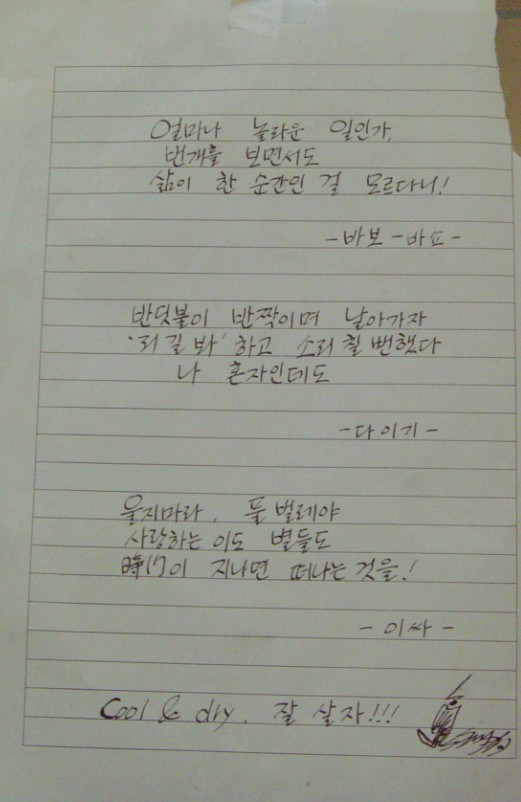 얼마나 놀라운 일인가,
번개를 보면서도
삶이 한 순간인 걸 모르다니!
-바보-바쇼-
반딧불이 반짝이며 날아가자
'저길 봐' 하고 소리칠 뻔했다
나 혼자인데도
-다이기-
울지마라, 풀벌레야
사랑하는 이도 별들도
時間이 지나면 떠나는 것을!
-이싸-
Cool & dry. 잘 살자!!!